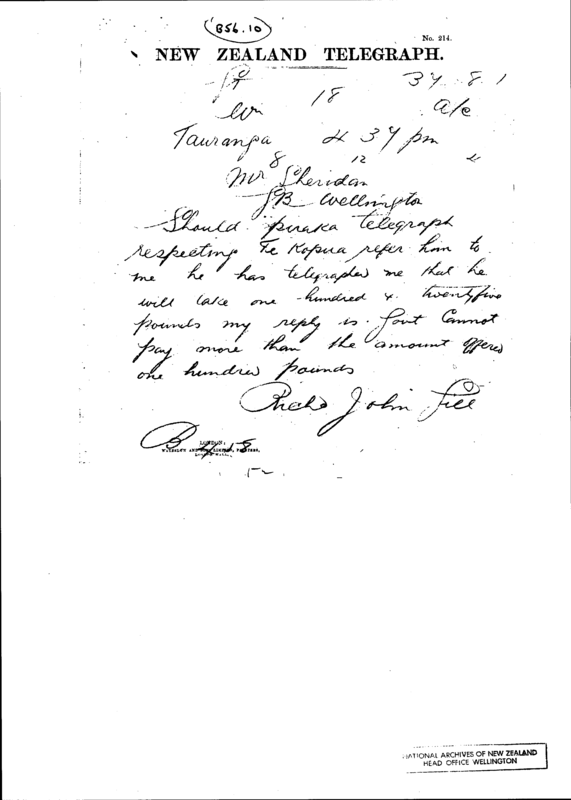 (B56.10)
No. 214.
NEW ZEALAND TELEGRAPH.
18
a/c
Tauranga 4 37 pm
8 12
Mr Sheridan
Wellington
Should piraka telegraph
respecting Te Kopua refer him to
me he has telegraphed me that he
will take one hundred & twentyfive
pounds my reply is Govt Cannot
pay more than the amount offered
one hundred pounds
Richd John Gill
LONDON:
NATIONAL ARCHIVES OF NEW ZEALAND
HEAD OFFICE WELLINGTON